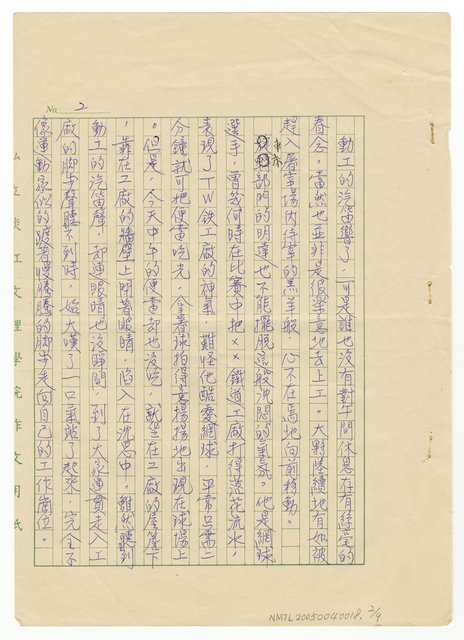 No. 2
動工的汽笛響了,可是誰也沒有對午間休息在有絲毫的
眷念。當然也並非是很樂意地去上工。大夥陸續地有如被
趕入屠宰場內待宰的黑羊般,心不在焉地向前移動。
部門的明達也不能擺脫這般沈悶的氣氛。他是網球
選手,曾幾何時在比賽中把××鐵道工廠打得落花流水,
表現了TW鉄工廠的神氣,難怪他酷愛網球,平常只需二
分鐘就可把便當吃光,拿著球拍得意揚揚地出現在球場上
。但是,今天中午的便當却也沒吃,就坐在工廠的屋簷下
,靠在工廠的牆壁上閉著眼睛,陷入在沈思中。雖然聽到
動工的汽笛聲,却連眼睛也沒睜開,到了大家魚貫走入工
廠的脚步聲聽不到時,始大嘆了一口氣站了起來,完全不
像運動家似的踱著慢騰騰的脚步走向自己的工作崗位。
私立淡江文理學院作文用紙
NMTL20050040018. 2/9